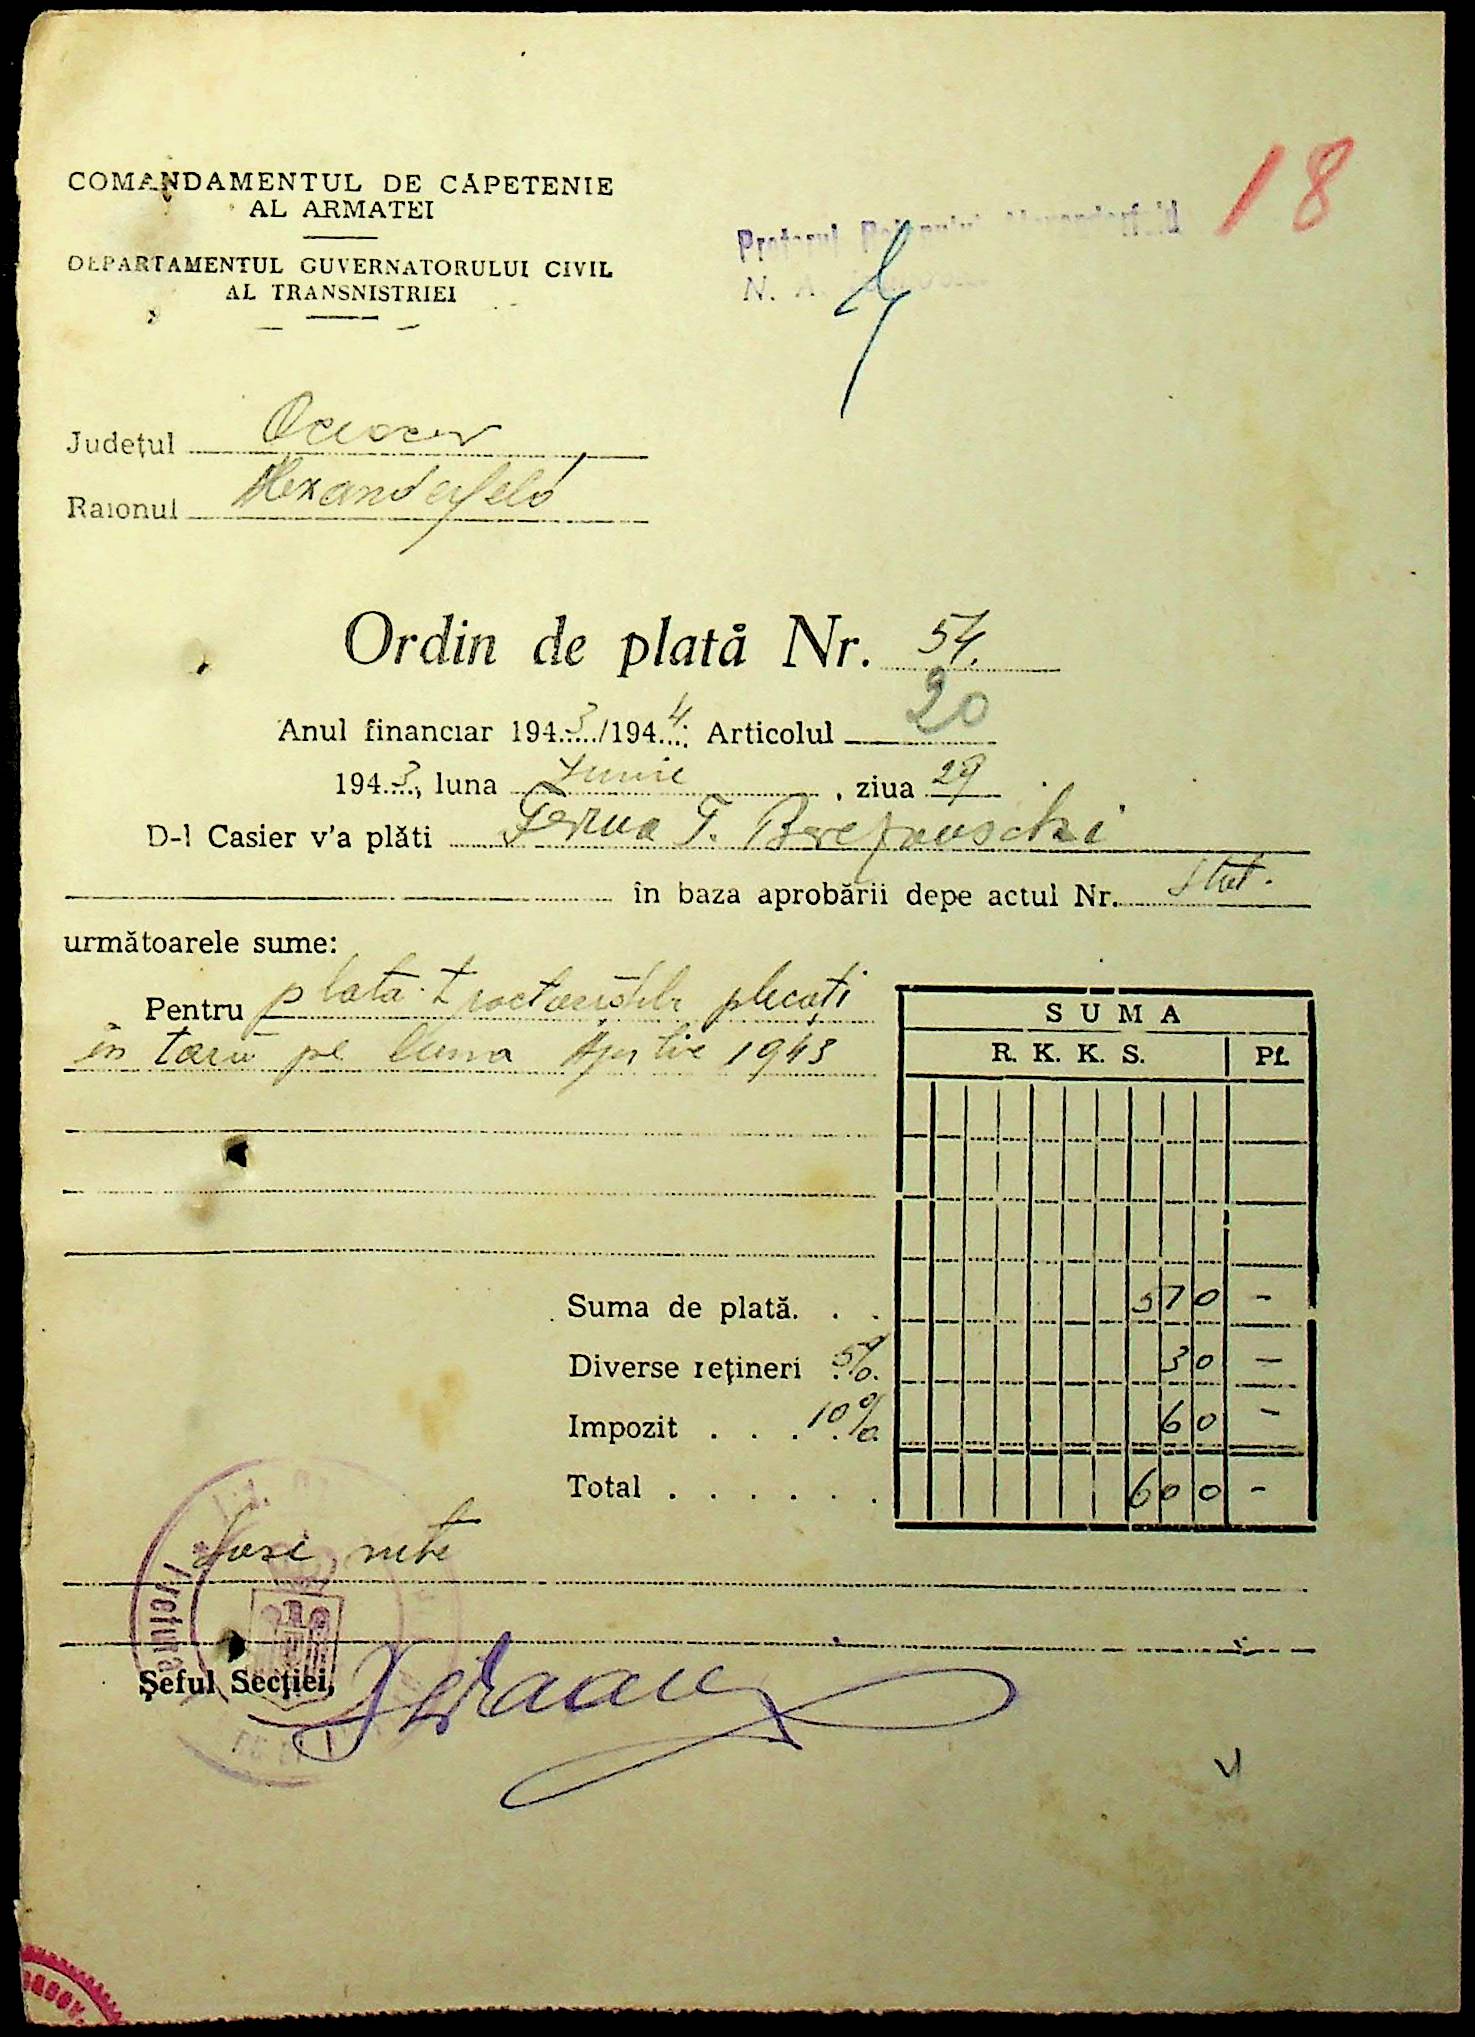 18
COMANDAMENTUL DE CAPETENIE
AL ARMATEI
DEPARTAMENTUL GUVERNATORULUI CIVIL
AL TRANSNISTRIEI
Pretorul
Județul Oceacov
Raionul Alexanderfeld
Ordin de plată Nr. 54.
Anul financiar 1943/1944; Articolul 20
1943, luna Iunie, ziua 29
D-l Casier v'a plăti Ferma T. Berezowschi
în baza aprobării depe actul Nr. Stat.
următoarele sume:
Pentru plata tractoriștilor plecați
în țară pe luna Aprilie 1943
SUMA
R. K. K. S. Pf.
Suma de plată. . . 570 -
Diverse rețineri 5%. 30 -
Impozit . . . 10%. 60 -
Total . . . . . . . 600 -
Șase sute
Pretura
Șeful Secției,